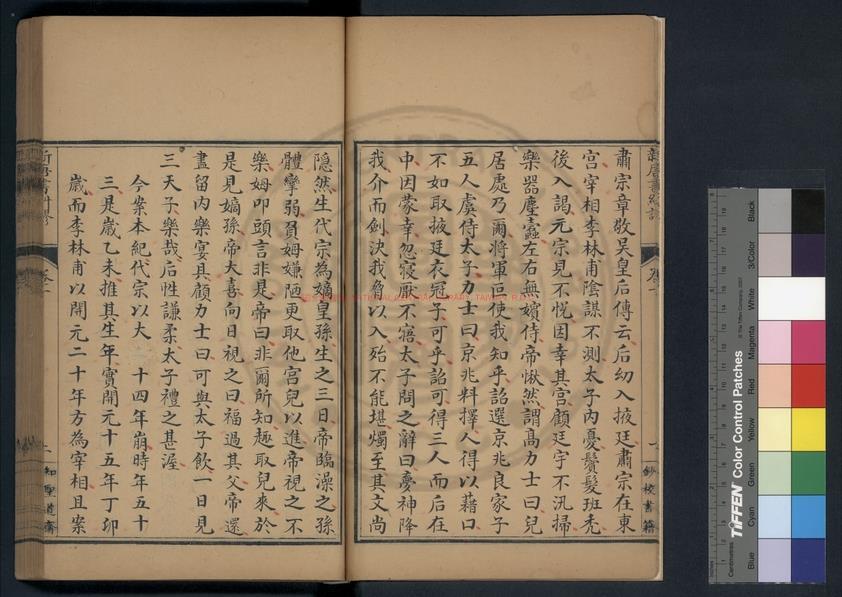 肅宗章敬吳皇后傳云后幼入掖廷肅宗在東
宮宰相李林甫陰謀不測太子內憂鬢髮班禿
後入謁元宗見不悅因幸其宮顧廷宇不汛掃
樂器塵蠹左右無嬪侍帝愀然謂髙力士曰兒
居處乃爾將軍叵使我知乎詔選京兆良家子
五人虞侍太子力士曰京兆料擇人得以藉口
不如取掖廷衣冠子可乎詔可得三人而后在
中因蒙幸忽寢厭不寤太子問之辭曰夢神降
我介而劍決我脅以入殆不能堪燭至其文尚
隱然生代宗為嫡皇孫生之三日帝臨澡之孫
體攣弱負姆嫌陋更取他宮兒以進帝視之不
樂姆叩頭言非是帝曰非爾所知趣取兒來於
是見嫡孫帝大喜向日視之曰福過其父帝還
盡留內樂宴具顧力士曰可與太子飲一日見
三天子樂哉后性謙柔太子禮之甚渥
今案本紀代宗以大 十四年崩時年五十
三是歲乙未推其生年實開元十五年丁卯
歲而李林甫以開元二十年方為宰相且案
新唐書糾謬
卷一
鈔校書籍
知聖道齋
TIFFEN Color Control Patches
© The Tiffen Company, 2007
Centimetres
Blue
Cyan
Green
Yellow
Red
Magenta
White
3/Color
Black